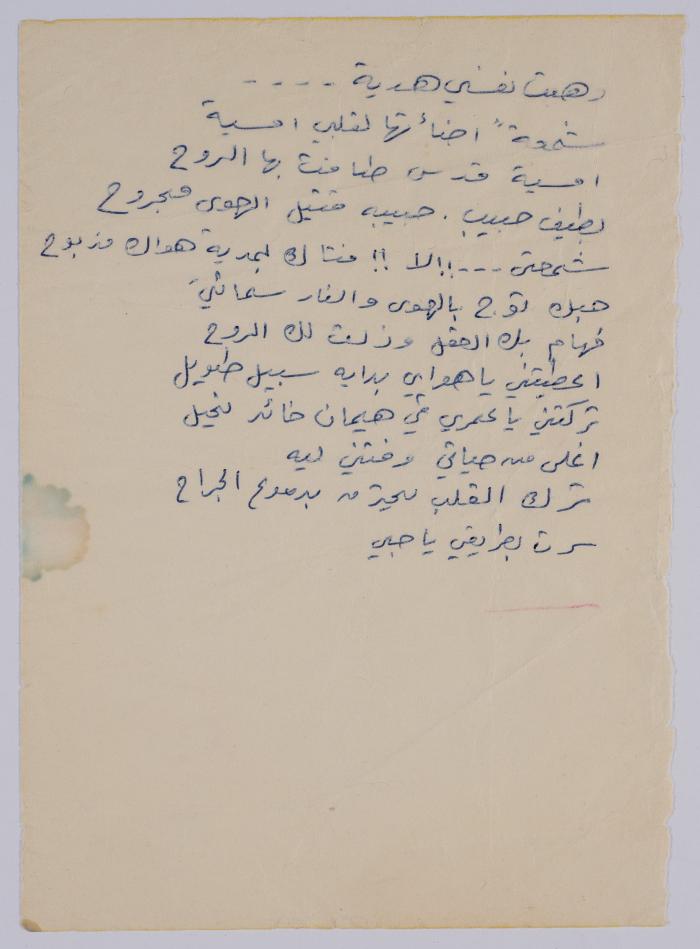 وهبت نفسي هدية ----
شمعة" اضائتها لقلبي امسية
امسية قدس طافت بها الروح
بطيف حبيب. حبيبه قتيل الهوى مجروح
شمعتي ---!! الا !! فتاك بمدية هواك مذبوح
هبك توج بالهوى والنار سمائي
فهام بك العقل وذلت لك الروح
اعطيتني يا هواي بدايه سبيل طويل
تركتني يا عمري في هيمان خائر نحيل
اغلى من حياتي وفتني ليه
ترك القلب بدموع الجراح
سرت بطريقي يا حبي